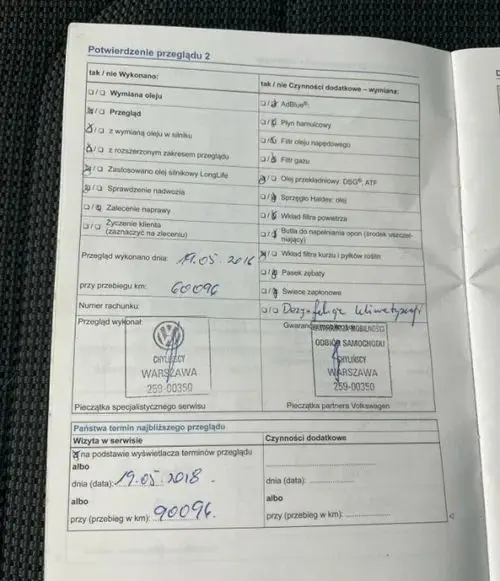 Potwierdzenie przeglądu 2
tak / nie Wykonano:
❏/❏ Wymiana oleju
❏/❏ Przegląd
❏/❏ z wymianą oleju w silniku
❏/❏ z rozszerzonym zakresem przeglądu
❏/❏ Zastosowano olej silnikowy LongLife
❏/❏ Sprawdzenie nadwozia
❏/❏ Zalecenie naprawy
❏/❏ Życzenie klienta
(zaznaczyć na zleceniu)
Przegląd wykonano dnia: 19.05.2016
przy przebiegu km: 60096
Numer rachunku:
Przegląd wykonał:
CHYLIŃSCY
WARSZAWA
259-00350
Pieczątka specjalistycznego serwisu
tak / nie Czynności dodatkowe – wymiana:
❏/❏ AdBlue®:
❏/❏ Płyn hamulcowy
❏/❏ Filtr oleju napędowego
❏/❏ Filtr gazu
❏/❏ Olej przekładniowy: DSG®, ATF
❏/❏ Sprzęgło Haldex: olej
❏/❏ Wkład filtra powietrza
❏/❏ Butla do napełniania opon (środek uszczel-
niający)
❏/❏ Wkład filtra kurzu i pyłków roślin
❏/❏ Pasek zębaty
❏/❏ Świece zapłonowe
❏/❏ Dezynfekcja klimatyzacji
Gwarancja mobilności
ODBIÓR SAMOCHODU
CHYLIŃSCY
WARSZAWA
259-00350
Pieczątka partnera Volkswagen
Państwa termin najbliższego przeglądu
Wizyta w serwisie
❏ na podstawie wyświetlacza terminów przeglądu
albo
dnia (data): 19.05.2018
albo
przy (przebieg w km): 90096
Czynności dodatkowe
dnia (data):
albo
przy (przebieg w km):